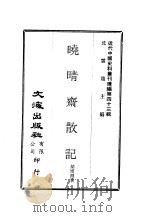 近代中國史料叢刊續編第四十三輯
沈雲龍主編
曉晴齋散記
文海出版社有限公司印行